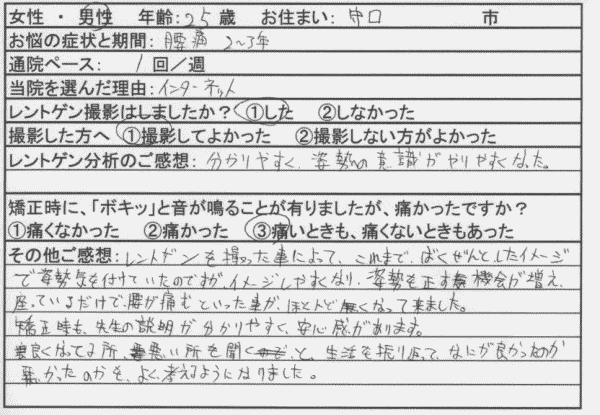 女性 ・ 男性 年齢:25歳 お住まい: 中口 市
お悩の症状と期間: 腰痛 2~3年
通院ペース: 1 回/週
当院を選んだ理由:インターネット
レントゲン撮影はしましたか? ①した ②しなかった
撮影した方へ ①撮影してよかった ②撮影しない方がよかった
レントゲン分析のご感想: 分かりやすく、姿勢への意識がやりやすくなった。
矯正時に、「ボキッ」と音が鳴ることが有りましたが、痛かったですか?
①痛くなかった ②痛かった ③痛いときも、痛くないときもあった
その他ご感想:レントゲンを撮った事によって、これまで、ばくぜんとしたイメージ
で姿勢気を付けていたのですが、イメージしやすくなり、姿勢を正す機会が増え、
座っているだけで、腰が痛むといった事が、ほとんど無くなって来ました。
矯正時も、先生の説明が分かりやすく、安心感があります。
良くなってる所、悪い所を聞くと、生活を振り返って、なにが良かったのか
悪かったのかを、よく考えるようになりました。